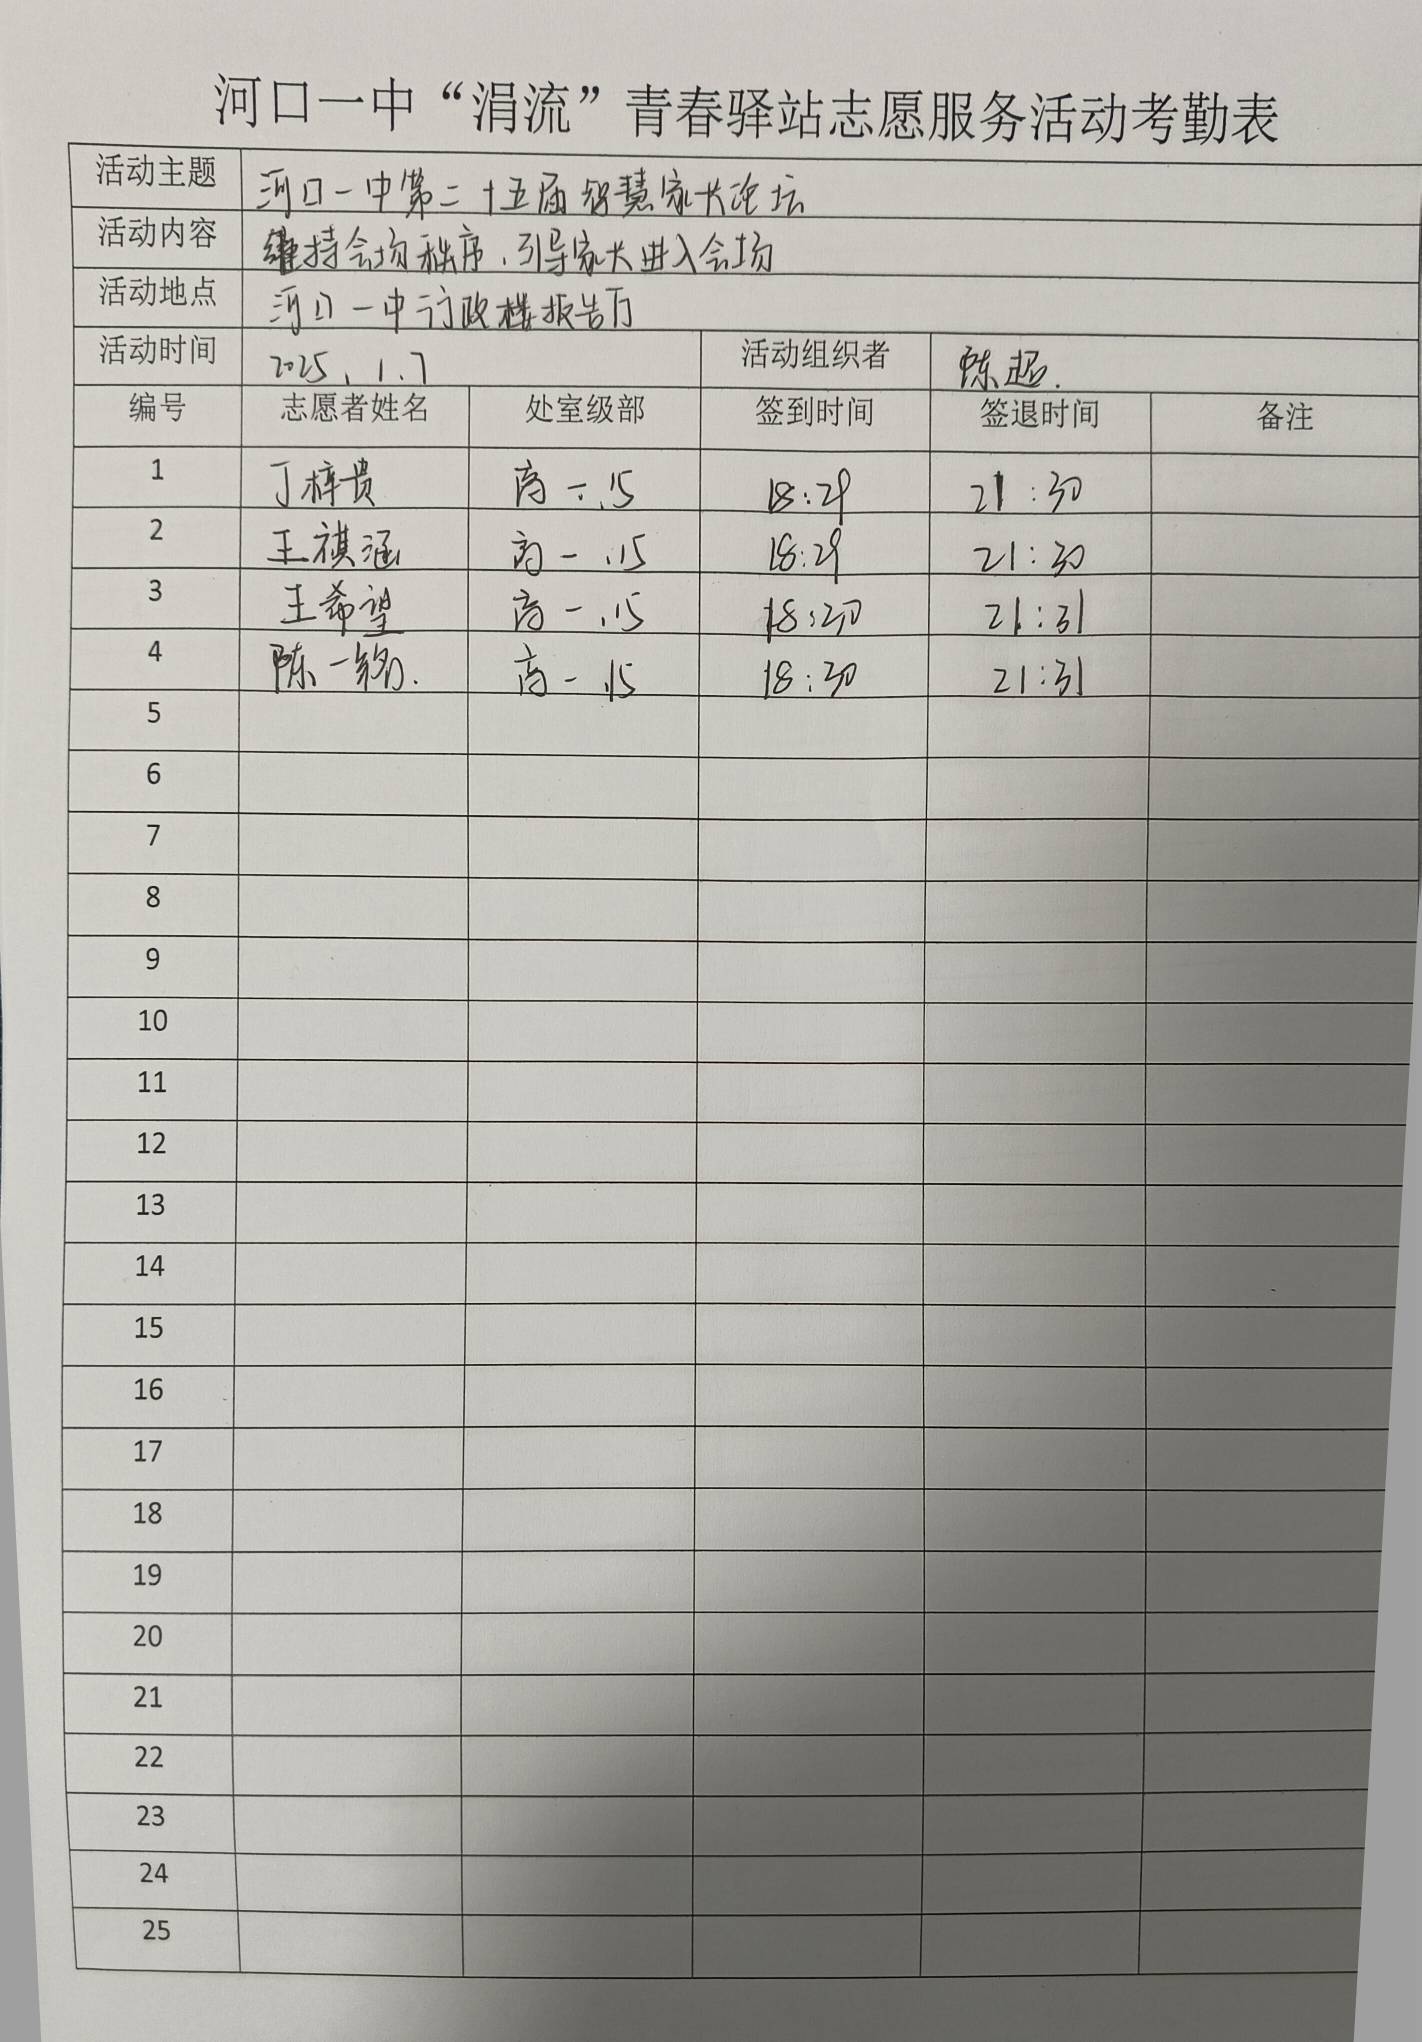 河口一中“涓流”青春驿站志愿服务活动考勤表
活动主题 河口一中第二十五届智慧家长论坛
活动内容 维持会场秩序、引导家长进入会场
活动地点 河口一中行政楼报告厅
活动时间 2025.1.7 活动组织者 陈超.
编号 志愿者姓名 处室级部 签到时间 签退时间 备注
1 丁梓贵 高一.15 18:29 21:30
2 王祺涵 高一.15 18:29 21:30
3 王希望 高一.15 18:30 21:31
4 陈一 高一.15 18:30 21:31
5
6
7
8
9
10
11
12
13
14
15
16
17
18
19
20
21
22
23
24
25